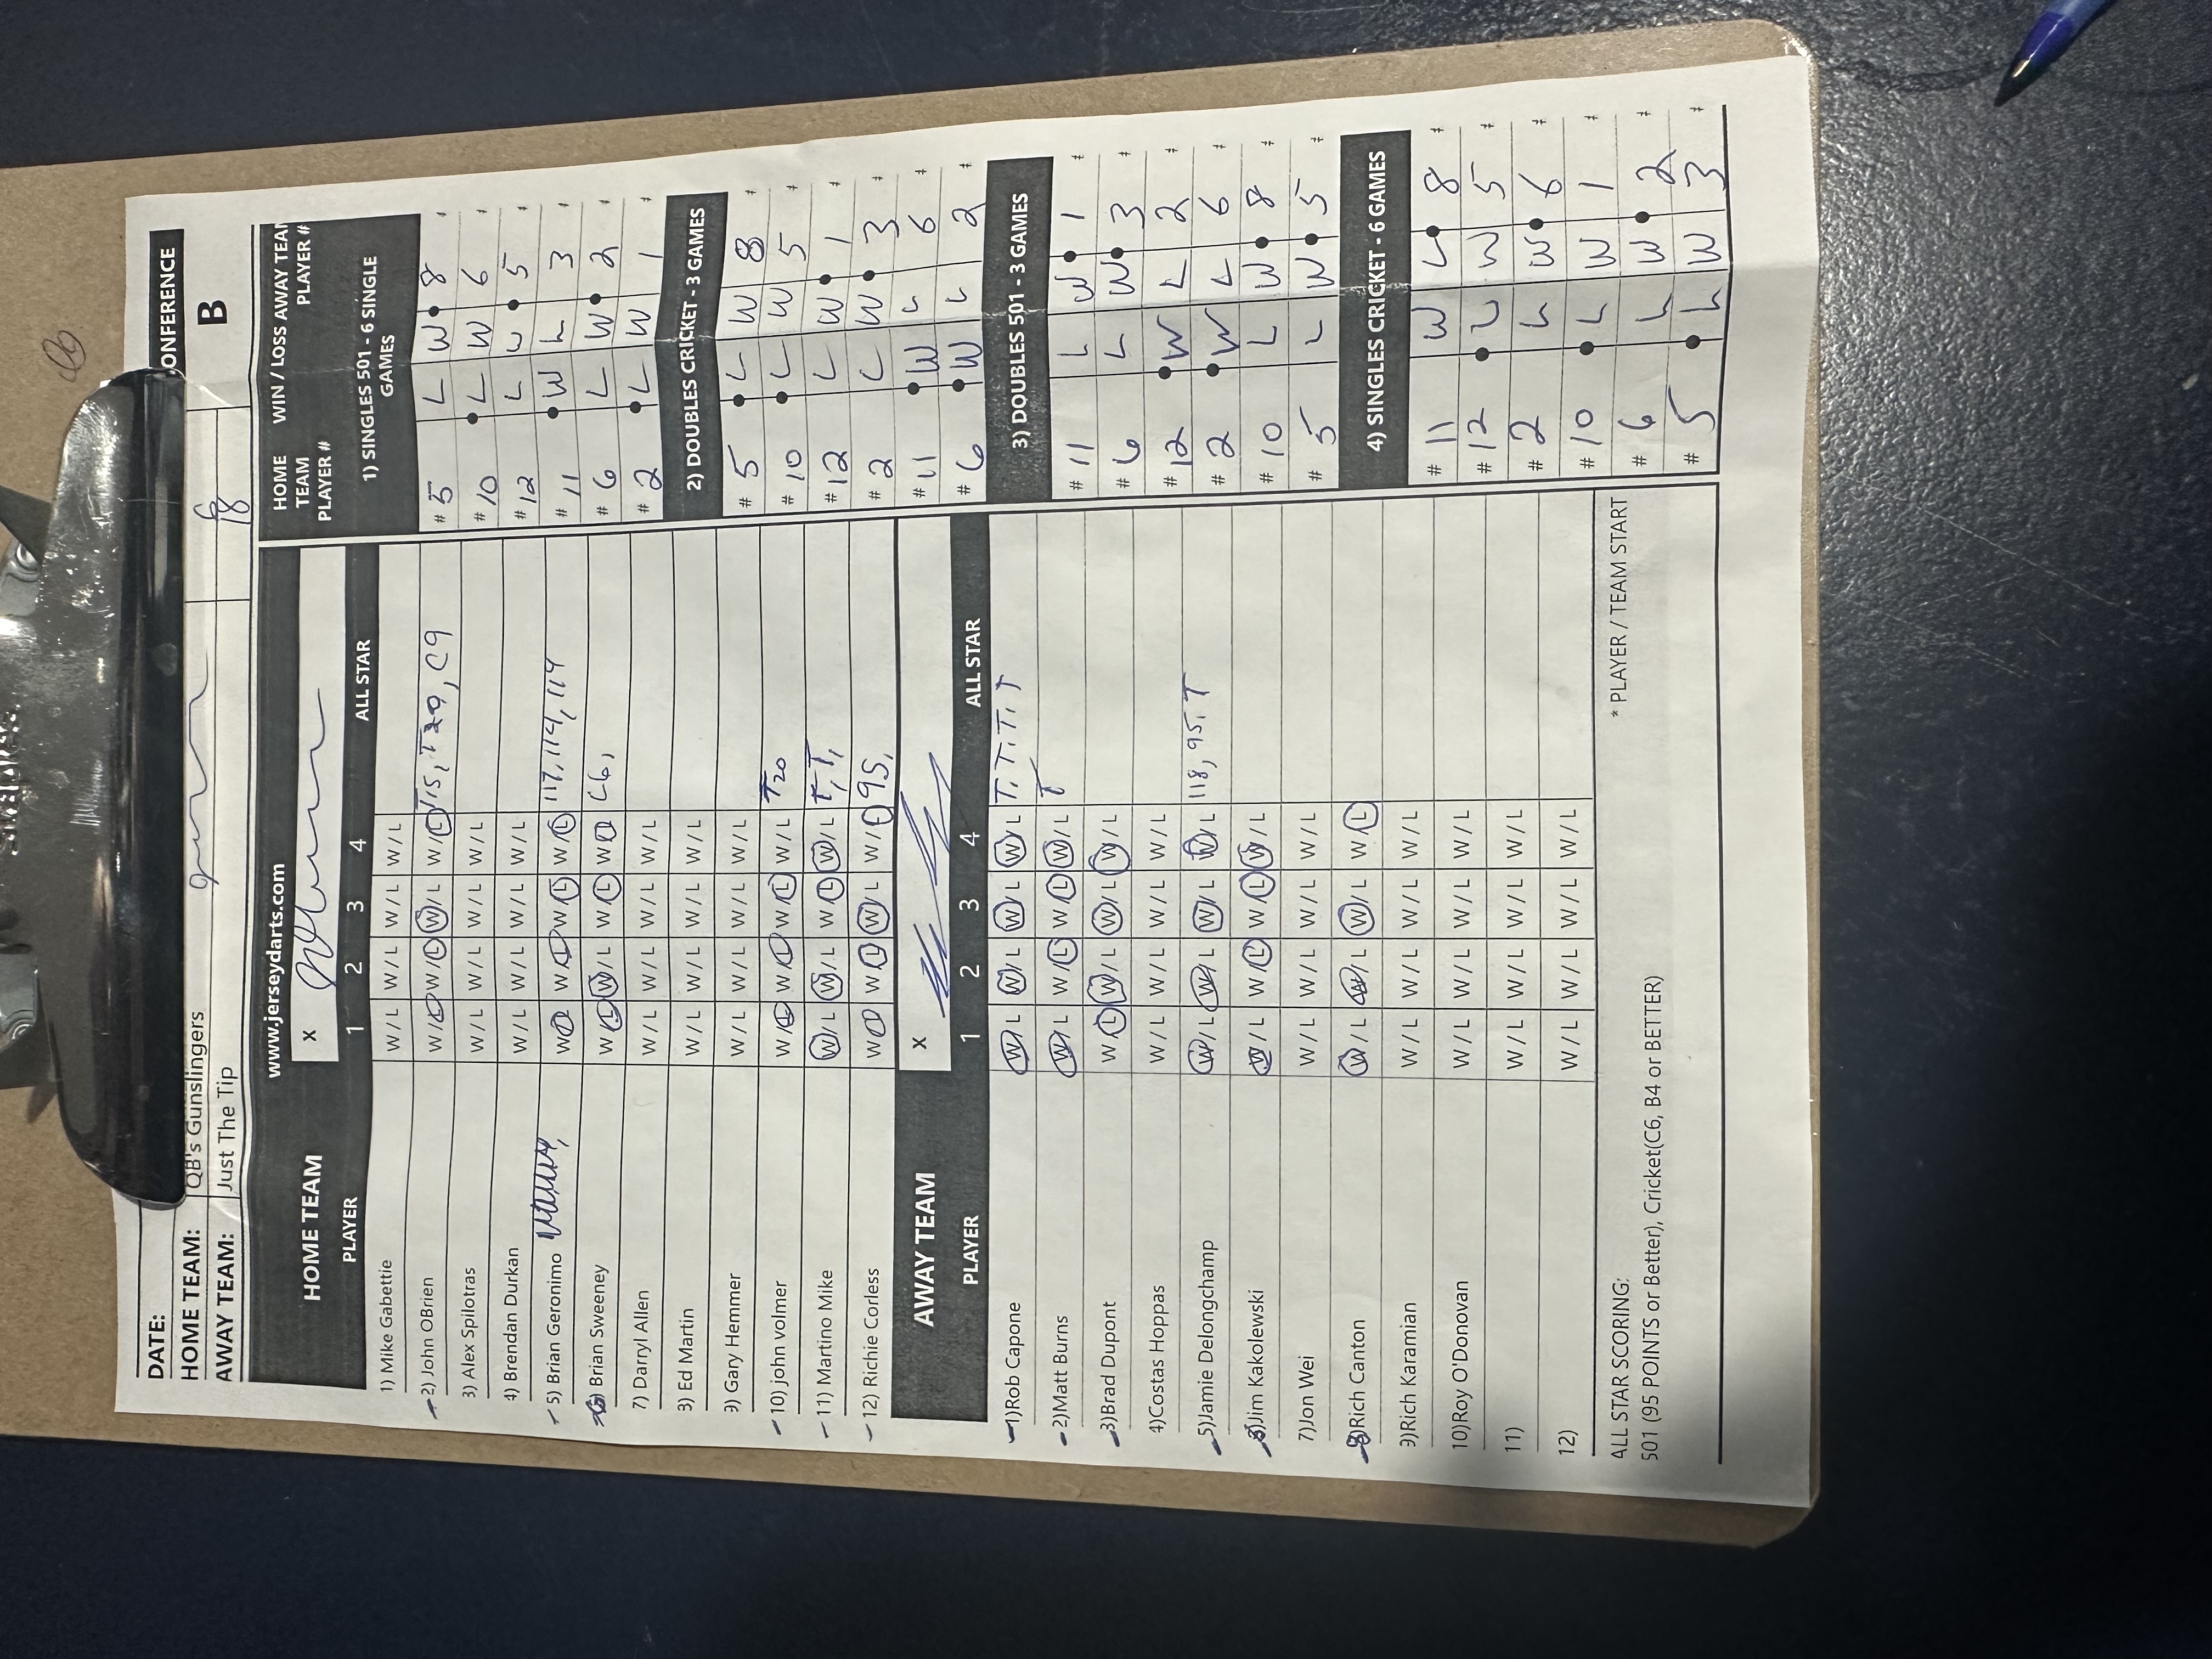 DATE:
CONFERENCE
HOME TEAM: QB's Gunslingers 6
AWAY TEAM: Just The Tip 18 B
www.jerseydarts.com
HOME TEAM X
PLAYER 1 2 3 4 ALL STAR
1) Mike Gabettie W / L W / L W / L W / L
2) John OBrien W / L W / L W / L W / L T15, T20, C9
3) Alex Spilotras W / L W / L W / L W / L
4) Brendan Durkan W / L W / L W / L W / L
5) Brian Geronimo W / L W / L W / L W / L 117, 114, 114
6) Brian Sweeney W / L W / L W / L W / L C6,
7) Darryl Allen W / L W / L W / L W / L
8) Ed Martin W / L W / L W / L W / L
9) Gary Hemmer W / L W / L W / L W / L
10) john volmer W / L W / L W / L W / L T20
11) Martino Mike W / L W / L W / L W / L T, T,
12) Richie Corless W / L W / L W / L W / L 95,
AWAY TEAM X
PLAYER 1 2 3 4 ALL STAR
1)Rob Capone W / L W / L W / L W / L T, T, T, T, T
2)Matt Burns W / L W / L W / L W / L T
3)Brad Dupont W / L W / L W / L W / L
4)Costas Hoppas W / L W / L W / L W / L
5)Jamie Delongchamp W / L W / L W / L W / L 118, 95, T
6)Jim Kakolewski W / L W / L W / L W / L
7)Jon Wei W / L W / L W / L W / L
8)Rich Canton W / L W / L W / L W / L
9)Rich Karamian W / L W / L W / L W / L
10)Roy O'Donovan W / L W / L W / L W / L
11) W / L W / L W / L W / L
12) W / L W / L W / L W / L
ALL STAR SCORING: * PLAYER / TEAM START
501 (95 POINTS or Better), Cricket(C6, B4 or BETTER)
HOME TEAM PLAYER # WIN / LOSS AWAY TEAM PLAYER #
1) SINGLES 501 - 6 SINGLE GAMES
# 5 L W 8 #
# 10 L W 6 #
# 12 L W 5 #
# 11 W L 3 #
# 6 L W 2 #
# 2 L W 1 #
2) DOUBLES CRICKET - 3 GAMES
# 5 L W 8 #
# 10 L W 5 #
# 12 L W 1 #
# 2 L W 3 #
# 11 W L 6 #
# 6 W L 2 #
3) DOUBLES 501 - 3 GAMES
# 11 L W 1 #
# 6 L W 3 #
# 12 W L 2 #
# 2 W L 6 #
# 10 L W 8 #
# 5 L W 5 #
4) SINGLES CRICKET - 6 GAMES
# 11 W L 8 #
# 12 L W 5 #
# 2 L W 6 #
# 10 L W 1 #
# 6 L W 2 #
# 5 L W 3 #